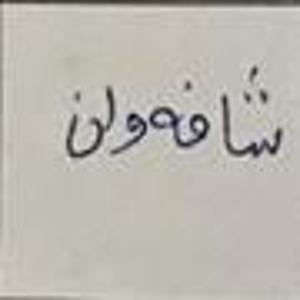 شافه ولن